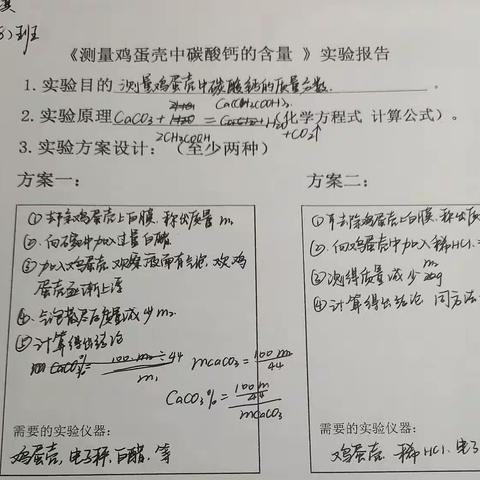 8)班
《测量鸡蛋壳中碳酸钙的含量 》实验报告
1. 实验目的 测量鸡蛋壳中碳酸钙的质量分数.
2. 实验原理 CaCO3 + 2CH3COOH = Ca(CH3COO)2 + H2O + CO2↑ (化学方程式 计算公式)。
3. 实验方案设计：（至少两种）
方案一：
①去除鸡蛋壳上白膜.称出质量 m1
②.向碗中加入过量白醋
③加入鸡蛋壳.观察液面有气泡,
蛋壳逐渐上浮
④.气泡散尽后质量减少 m2
⑤计算得出结论
CaCO3% = 100 m2 ÷ 44 / m1
mCaCO3 = 100 m2 / 44
CaCO3% = 100 m / 44 / mCaCO3
需要的实验仪器：
鸡蛋壳,电子秤,白醋.等
方案二：
①去除鸡蛋壳上白膜.称出质
②.向鸡蛋壳中加入稀HCl.
③测得质量减少 m2
④计算得出结论 同方法
需要的实验仪器：
鸡蛋壳.稀HCl.电子